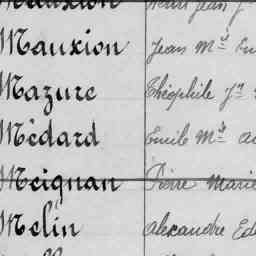 Mauxion Jean Mie
Mazure Théophile Jn
Médard Emile Mie
Meignan Pierre Marie
Melin Alexandre Ed